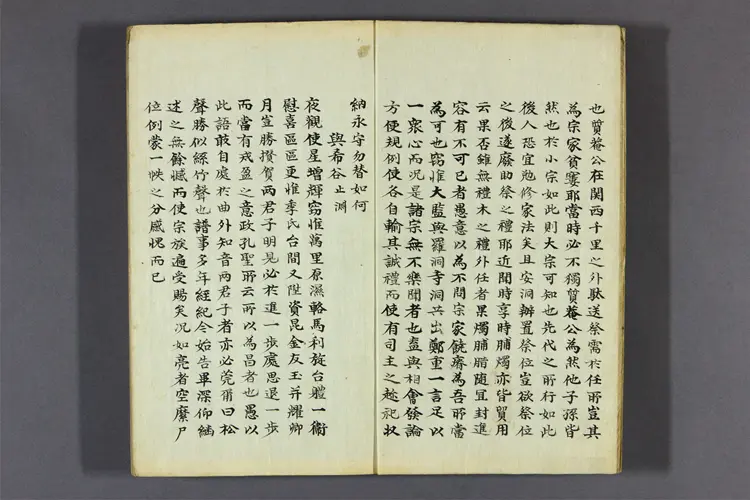 也質菴公在関西千里之外馱送祭需於任所豈其
為宗家貧寠耶當時必不獨質菴公為然他子孫皆
然也於小宗如此則大宗可知也先代之所行如此
後人恐宜勉修家法矣且安洞辦置祭位豈欲祭位
之後遂廢助祭之禮耶近聞時享時脯燭亦皆貿用
云果否雖無禮木之禮外任者果燭脯腊隨宜封進
容有不可已者愚意以為不問宗家饒瘠為吾所當
為可也窃惟大監與羅洞寺洞共出鄭重一言足以
一衆心而況是諸宗無不樂聞者也盍與相會發論
方便規例使各自輸其誠禮而使有司主之趁祀收
納永守勿替如何
與希谷止淵
夜觀使星增輝窃惟萬里原濕輅馬利旋台軆一衛
慰喜區區更惟季氏台閤又陞資昆金友玉并耀卿
月豈勝攢賀两君子明見必於進一步處思退一步
而當有戒盈之意政孔聖所云所以為昌者也愚以
此語敢自處於曲外知音两君子者亦必莞爾曰松
聲勝似絲竹聲也譜事多年經紀今始告畢深仰緬
述之無餘憾而使宗族遍受賜矣况如亮者空縻尸
位例蒙一帙之分感愧而已